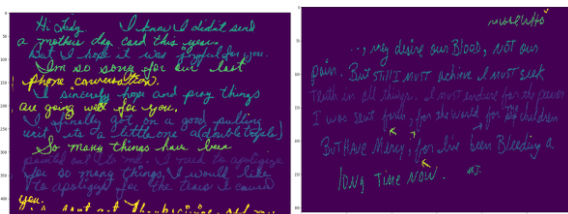 Hi Lady I know I didn't send
a mothers day card this year.
but I hope it was joyful for you.
I'm so sorry for our last
phone conversation.
I sincerly hope and pray things
are going well for you.
I finally got on a good pulling
unit, its a little one
So many things have been
pointed out to me. I need to apologize
for so many things, I would like
to apologize for the tears I caused
you.
they desire our BLOOD, NOT our
pain. But STILL I MUST achieve I MUST seek
Truth in all things. I must endure for the
I was sent forth, for the world for the children
BUT HAVE Mercy, for I've been Bleeding a
long Time NOW.